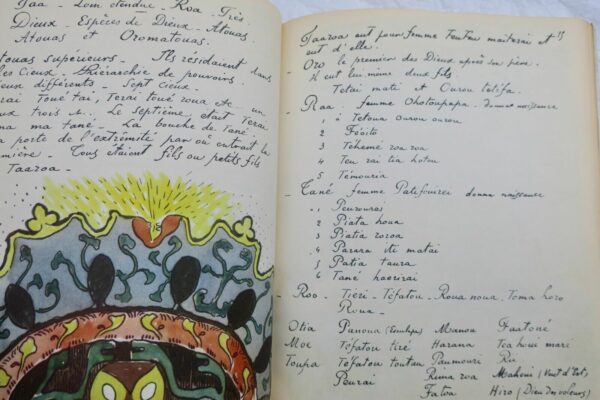 Taa - Loin etendue - Roa Très.
Dieux - Espèces de Dieux - Atouas
Atouas et Oromatouas.
touas supérieurs - Ils résidaient dans
les Cieux. Hiérarchie de pouvoirs.
eux différents - Sept cieux.
rai Toué tai, Terai toué roua etc - un
eux trois etc.. Le septième était Terai
ma ma tané - La bouche de Tané -
a porte de l'extrémité par où entrait la
mière - Tous étaient fils ou petits fils
Taaroa -
Taaroa eut pour femme maiterai et
eut d'elle.
Oro le premier des Dieux après son père.
Il eut lui même deux fils
Tetai mati et Ourou tetifa.
- Raa femme Ohotoupapa - donne naissance
1 à Tetoua ourou ourou
2 Féoito
3 Téhemé roa roa
4 Teu rai tia hotou
5 Témouria
- Tané femme Patifouirei donna naissance
1 Peuroures
2 Piata houa
3 Piatia roroa
4 Parara iti matai
5 Patia taura
6 Tané haerirai
- Roo - Tiéri - Téfatou - Roua noua - Toma horo
Roua -
Otia Panoua Manou Faatoné
Moe Téfatou tiré Harana Toa houi mare
Toupa Téfatou toutau Paumouri Rii
Peurai Rima roa Mahoui (Vent d'Est)
Fatoa Hiro (Dieu des voleurs)